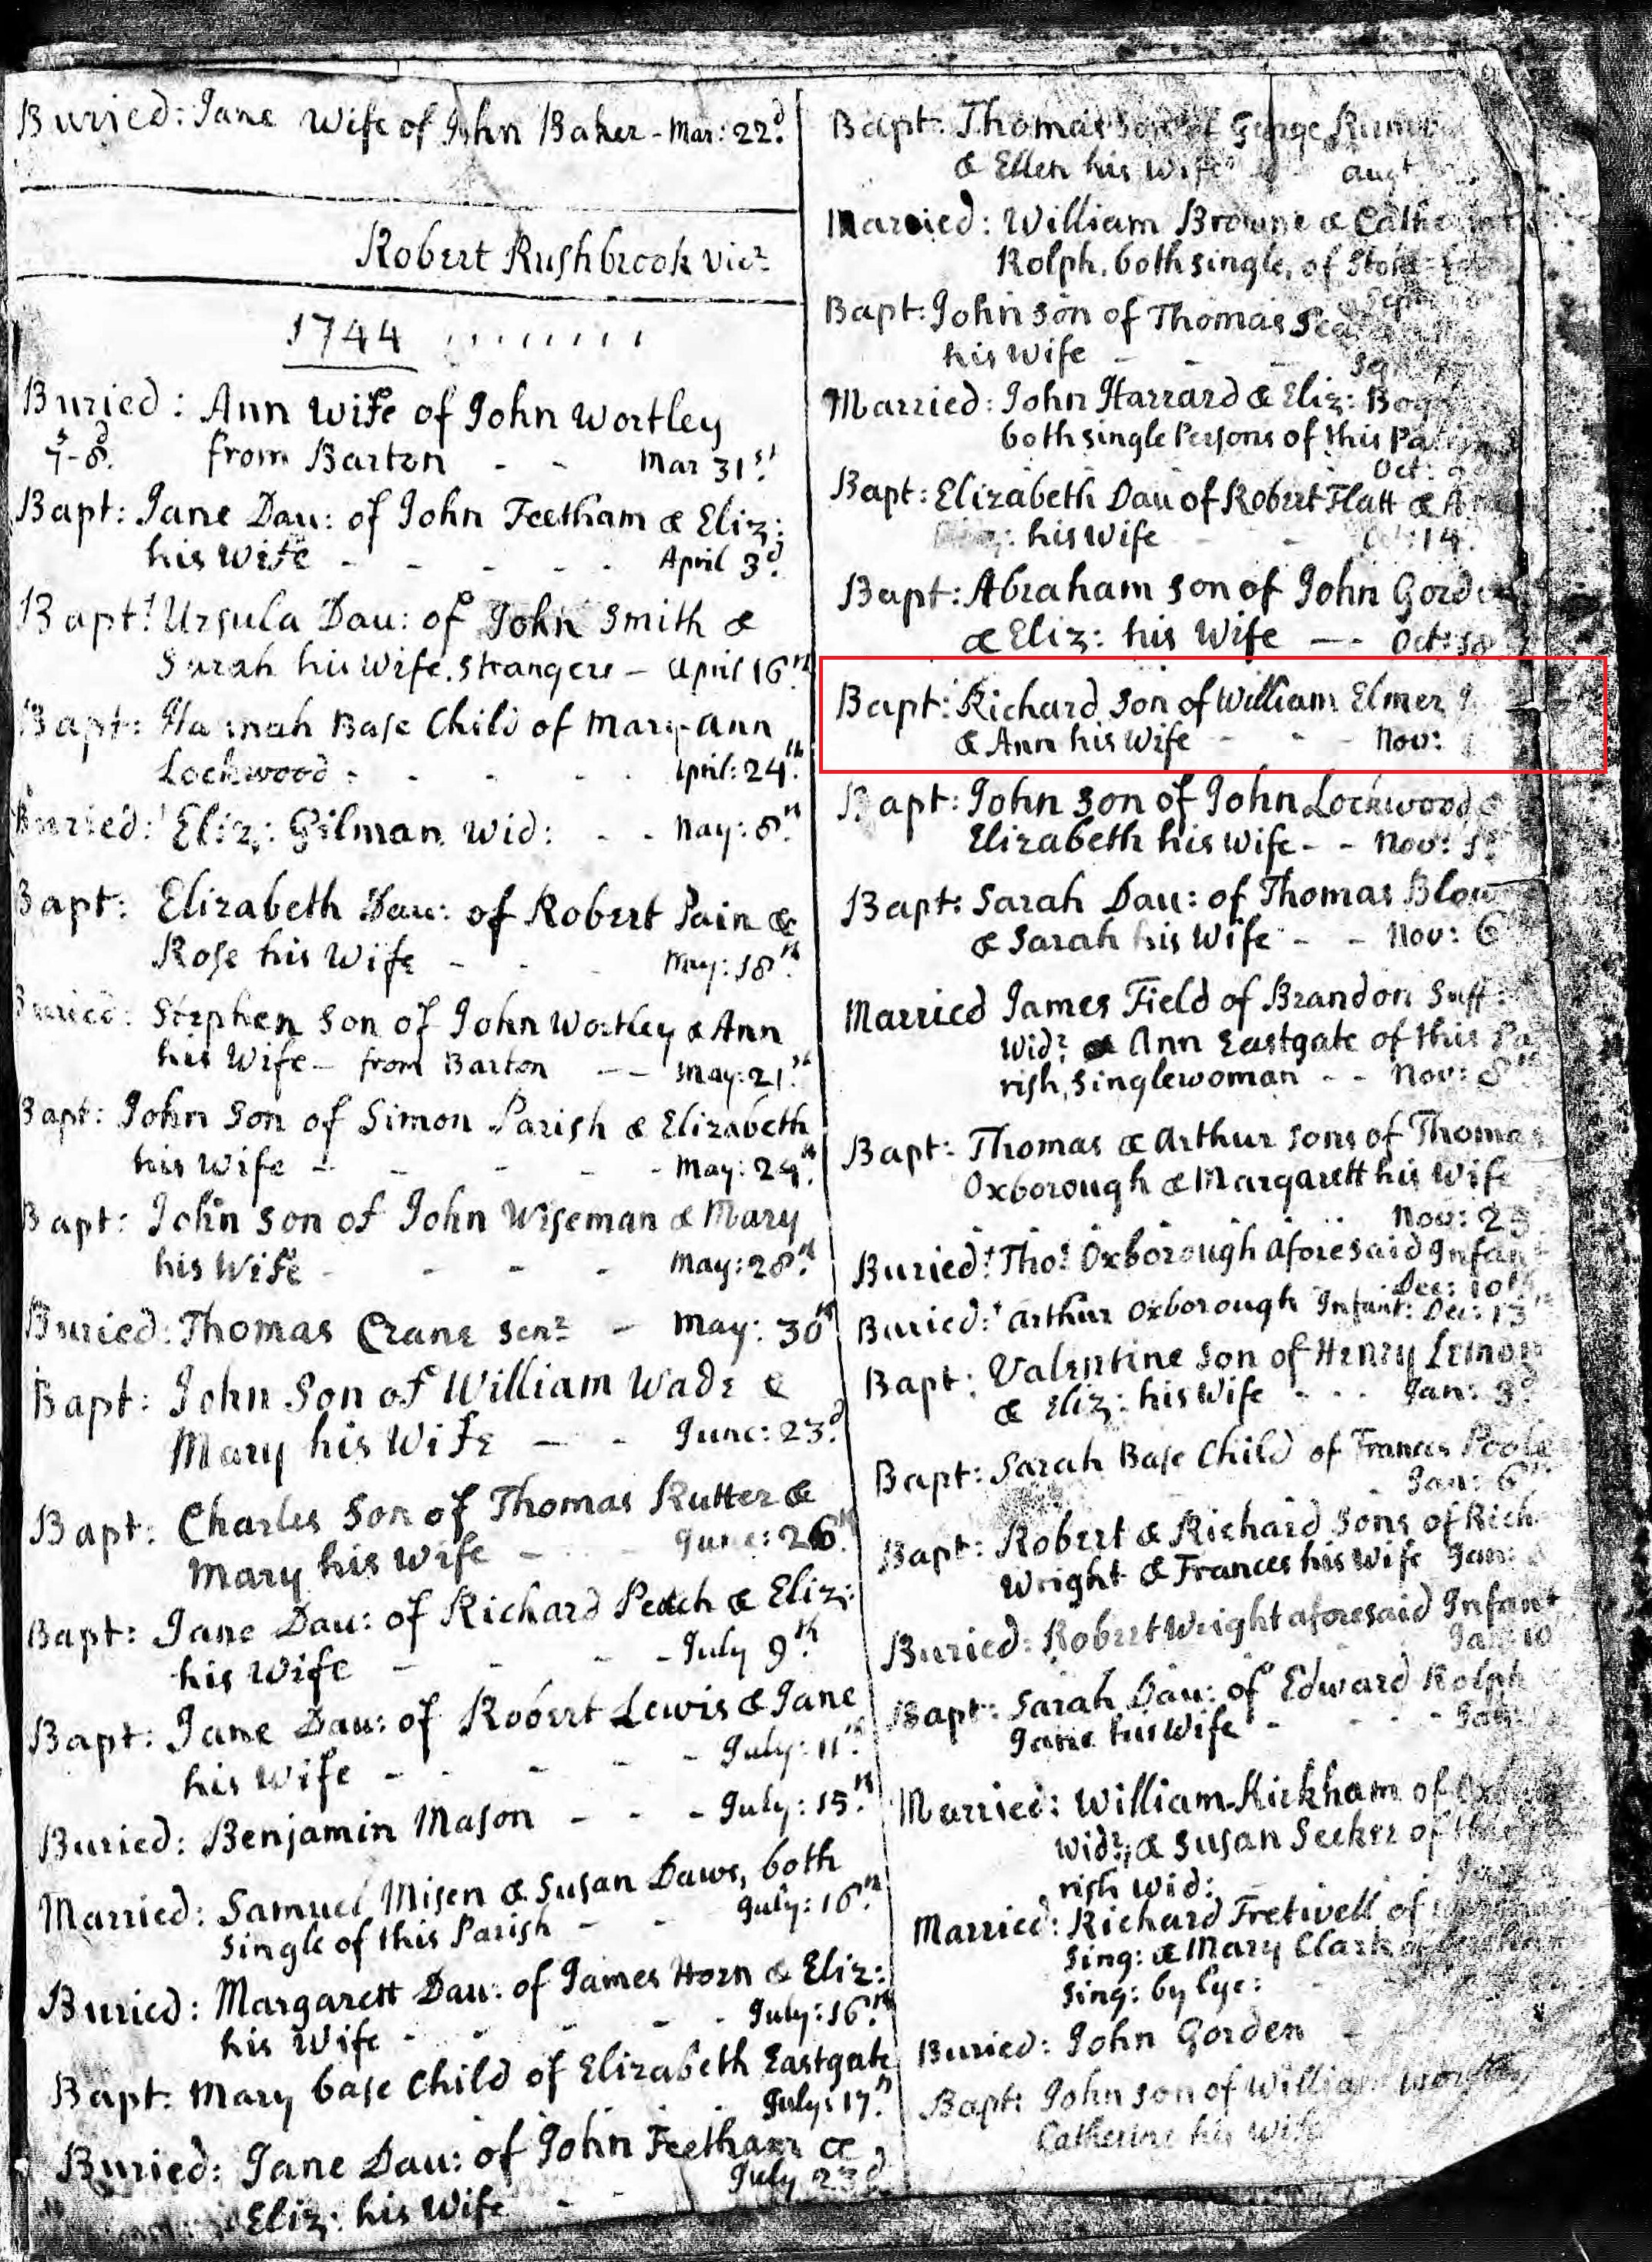 Buried: Jane Wife of John Baker - Mar: 22d.
Robert Rushbrook Vicr
1744
Buried: Ann Wife of John Wortley
from Barton - - Mar 31st.
Bapt: Jane Dau: of John Feetham & Eliz:
his Wife - - - - - April 3d.
Bapt: Ursula Dau: of John Smith &
Sarah his Wife. Strangers - April 16th
Bapt: Hannah Base Child of Mary-Ann
Lockwood - - - - April: 24th.
Buried: Eliz: Gilman Wid: - - May: 8th
Bapt: Elizabeth Dau: of Robert Pain &
Rose his Wife - - - May: 18th.
Buried: Stephen Son of John Wortley & Ann
his Wife - from Barton -- May: 21.st
Bapt: John Son of Simon Parish & Elizabeth
his Wife - - - - - May: 24th.
Bapt: John Son of John Wiseman & Mary
his Wife - - - - May: 28th.
Buried: Thomas Crane Senr - May: 30th
Bapt: John Son of William Wade &
Mary his Wife - - June: 23d.
Bapt: Charles Son of Thomas Rutter &
Mary his Wife - - June: 26th.
Bapt: Jane Dau: of Richard Peach & Eliz:
his Wife - - - - July 9th.
Bapt: Jane Dau: of Robert Lewis & Jane
his Wife - - - - - July: 11th.
Buried: Benjamin Mason - - - July: 15th.
Married: Samuel Misen & Susan Daws, both
Single of this Parish - - July: 16th.
Buried: Margarett Dau: of James Horn & Eliz:
his Wife - - - - - July: 16th.
Bapt: Mary base Child of Elizabeth Eastgate
July: 17th.
Buried: Jane Dau: of John Feetham &
July 23d
Eliz: his Wife - -
Bapt: Thomas Son of George
& Ellen his Wife - augt
Married: William Browne &
Rolph, both single, of Stoke
Bapt: John Son of Thomas
his Wife - - -
Married: John Harrard & Eliz:
both single Persons of this
Oct:
Bapt: Elizabeth Dau of Robert Flatt &
his Wife - - 14
Bapt: Abraham Son of John Gorden
& Eliz: his Wife -- Oct: 18
Bapt: Richard Son of William Elmer
& Ann his Wife - - - Nov:
Bapt: John Son of John Lockwood &
Elizabeth his Wife - - Nov:
Bapt: Sarah Dau: of Thomas
& Sarah his Wife - - Nov: 6
Married James Field of Brandon Suff:
Widr & Ann Eastgate of this Pa
rish, Singlewoman - - Nov: 8th
Bapt: Thomas & Arthur Sons of Thomas
Oxborough & Margarett his Wife
Nov: 25
Buried: Thos: Oxborough aforesaid Infant
Dec: 10th
Buried: Arthur Oxborough Infant: Dec: 13th
Bapt: Valentine Son of Henry Lemon
& Eliz: his Wife - - - Jan: 3d
Bapt: Sarah Base Child of Frances Poole
Jan: 6th
Bapt: Robert & Richard Sons of Rich
Wright & Frances his Wife Jan:
Buried: Robert Wright aforesaid Infant
Jan: 10
Bapt: Sarah Dau: of Edward Rolph
Jane his Wife - - - -
Married: William Kirkham of
Widr, & Susan Seeker of this
rish Wid:
Married: Richard Fretwell of
Sing: & Mary Clark of
Sing: by Lyc:
Buried: John Gorden -
Bapt: John Son of William Wortley
Catherine his Wife